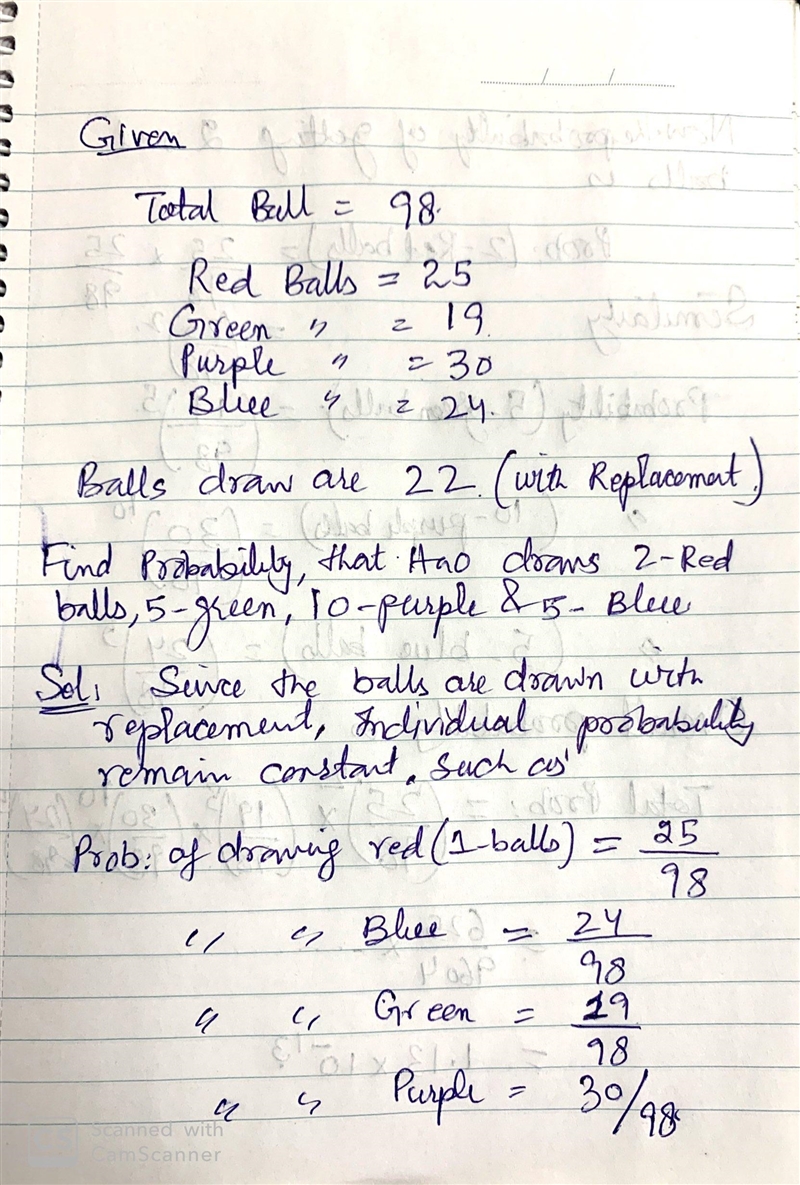 Given
Tootal Ball = 98.
Red Balls = 25
Green " = 19.
Purple " = 30
Blue " = 24.
Balls draw are 22. (with Replacement.)
Find Probability, that Hao draws 2-Red
balls, 5-green, 10-purple & 5- Blue
Sol: Since the balls are drawn with
replacement, Individual probability
remain constant. Such as
Prob: of drawing red (1-balls) = 25/98
" " Blue = 24/98
" " Green = 19/98
" " Purple = 30/98
Scanned with
CamScanner